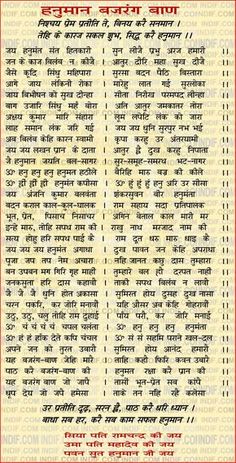 हनुमान बजरंग बाण
निश्चय प्रेम प्रतीति ते, बिनय करैं सनमान ।
तेहि के कारज सकल शुभ, सिद्ध करैं हनुमान ।।
जय हनुमंत संत हितकारी । सुन लीजै प्रभु अरज हमारी ।।
जन के काज बिलंब न कीजै । आतुर दौरि महा सुख दीजै ।।
जैसे कूदि सिंधु महिपारा । सुरसा बदन पैठि बिस्तारा ।।
आगे जाय लंकिनी रोका । मारेहु लात गई सुरलोका ।।
जाय बिभीषन को सुख दीन्हा । सीता निरखि परमपद लीन्हा ।।
बाग उजारि सिंधु महँ बोरा । अति आतुर जमकातर तोरा ।।
अक्षय कुमार मारि संहारा । लूम लपेटि लंक को जारा ।।
लाह समान लंक जरि गई । जय जय धुनि सुरपुर नभ भई ।।
अब बिलंब केहि कारन स्वामी । कृपा करहु उर अंतरयामी ।।
जय जय लखन प्रान के दाता । आतुर ह्वै दुख करहु निपाता ।।
जै हनुमान जयति बल-सागर । सुर-समूह-समरथ भट-नागर ।।
ॐ हनु हनु हनु हनुमंत हठीले । बैरिहि मारु बज्र की कीले ।।
जय अंजनि कुमार बलवंता । शंकरसुवन बीर हनुमंता ।।
बदन कराल काल-कुल-घालक । राम सहाय सदा प्रतिपालक ।।
भूत, प्रेत, पिसाच निसाचर । अगिन बेताल काल मारी मर ।।
इन्हें मारु, तोहि सपथ राम की । राखु नाथ मरजाद नाम की ।।
सत्य होहु हरि सपथ पाइ कै । राम दूत धरु मारु धाइ कै ।।
जय जय जय हनुमंत अगाधा । दुख पावत जन केहि अपराधा ।।
पूजा जप तप नेम अचारा । नहिं जानत कछु दास तुम्हारा ।।
बन उपबन मग गिरि गृह माहीं । तुम्हरे बल हौं डरपत नाहीं ।।
जनकसुता हरि दास कहावौ । ताकी सपथ बिलंब न लावौ ।।
जै जै जै धुनि होत अकासा । सुमिरत होय दुसह दुख नासा ।।
चरन पकरि, कर जोरि मनावौं । यहि औसर अब केहि गोहरावौं ।।
उठु, उठु, चलु तोहि राम दुहाई । पायँ परौं, कर जोरि मनाई ।।
ॐ चं चं चं चं चपल चलंता । ॐ हनु हनु हनु हनु हनुमंता ।।
ॐ हं हं हाँक देत कपि चंचल । ॐ सं सं सहमि पराने खल-दल ।।
अपने जन को तुरत उबारौ । सुमिरत होय आनंद हमारौ ।।
यह बजरंग-बाण जेहि मारै । ताहि कहौ फिरि कवन उबारै ।।
पाठ करै बजरंग-बाण की । हनुमत रक्षा करै प्रान की ।।
यह बजरंग बाण जो जापैं । तासों भूत-प्रेत सब कापैं ।।
धूप देय जो जपै हमेसा । ताके तन नहिं रहै कलेसा ।।
उर प्रतीति दृढ़, सरन ह्वै, पाठ करै धरि ध्यान ।
बाधा सब हर, करैं सब काम सफल हनुमान ।।
सिया पति रामचन्द्र की जय
उमा पति महादेव की जय
पवन सुत हनुमान की जय